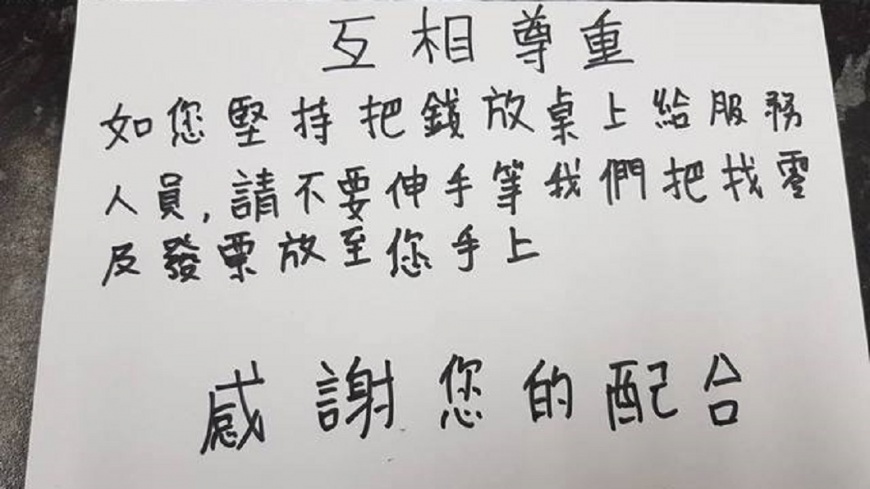 互相尊重
如您堅持把錢放桌上給服務
人員,請不要伸手等我們把找零
及發票放至您手上
感謝您的配合